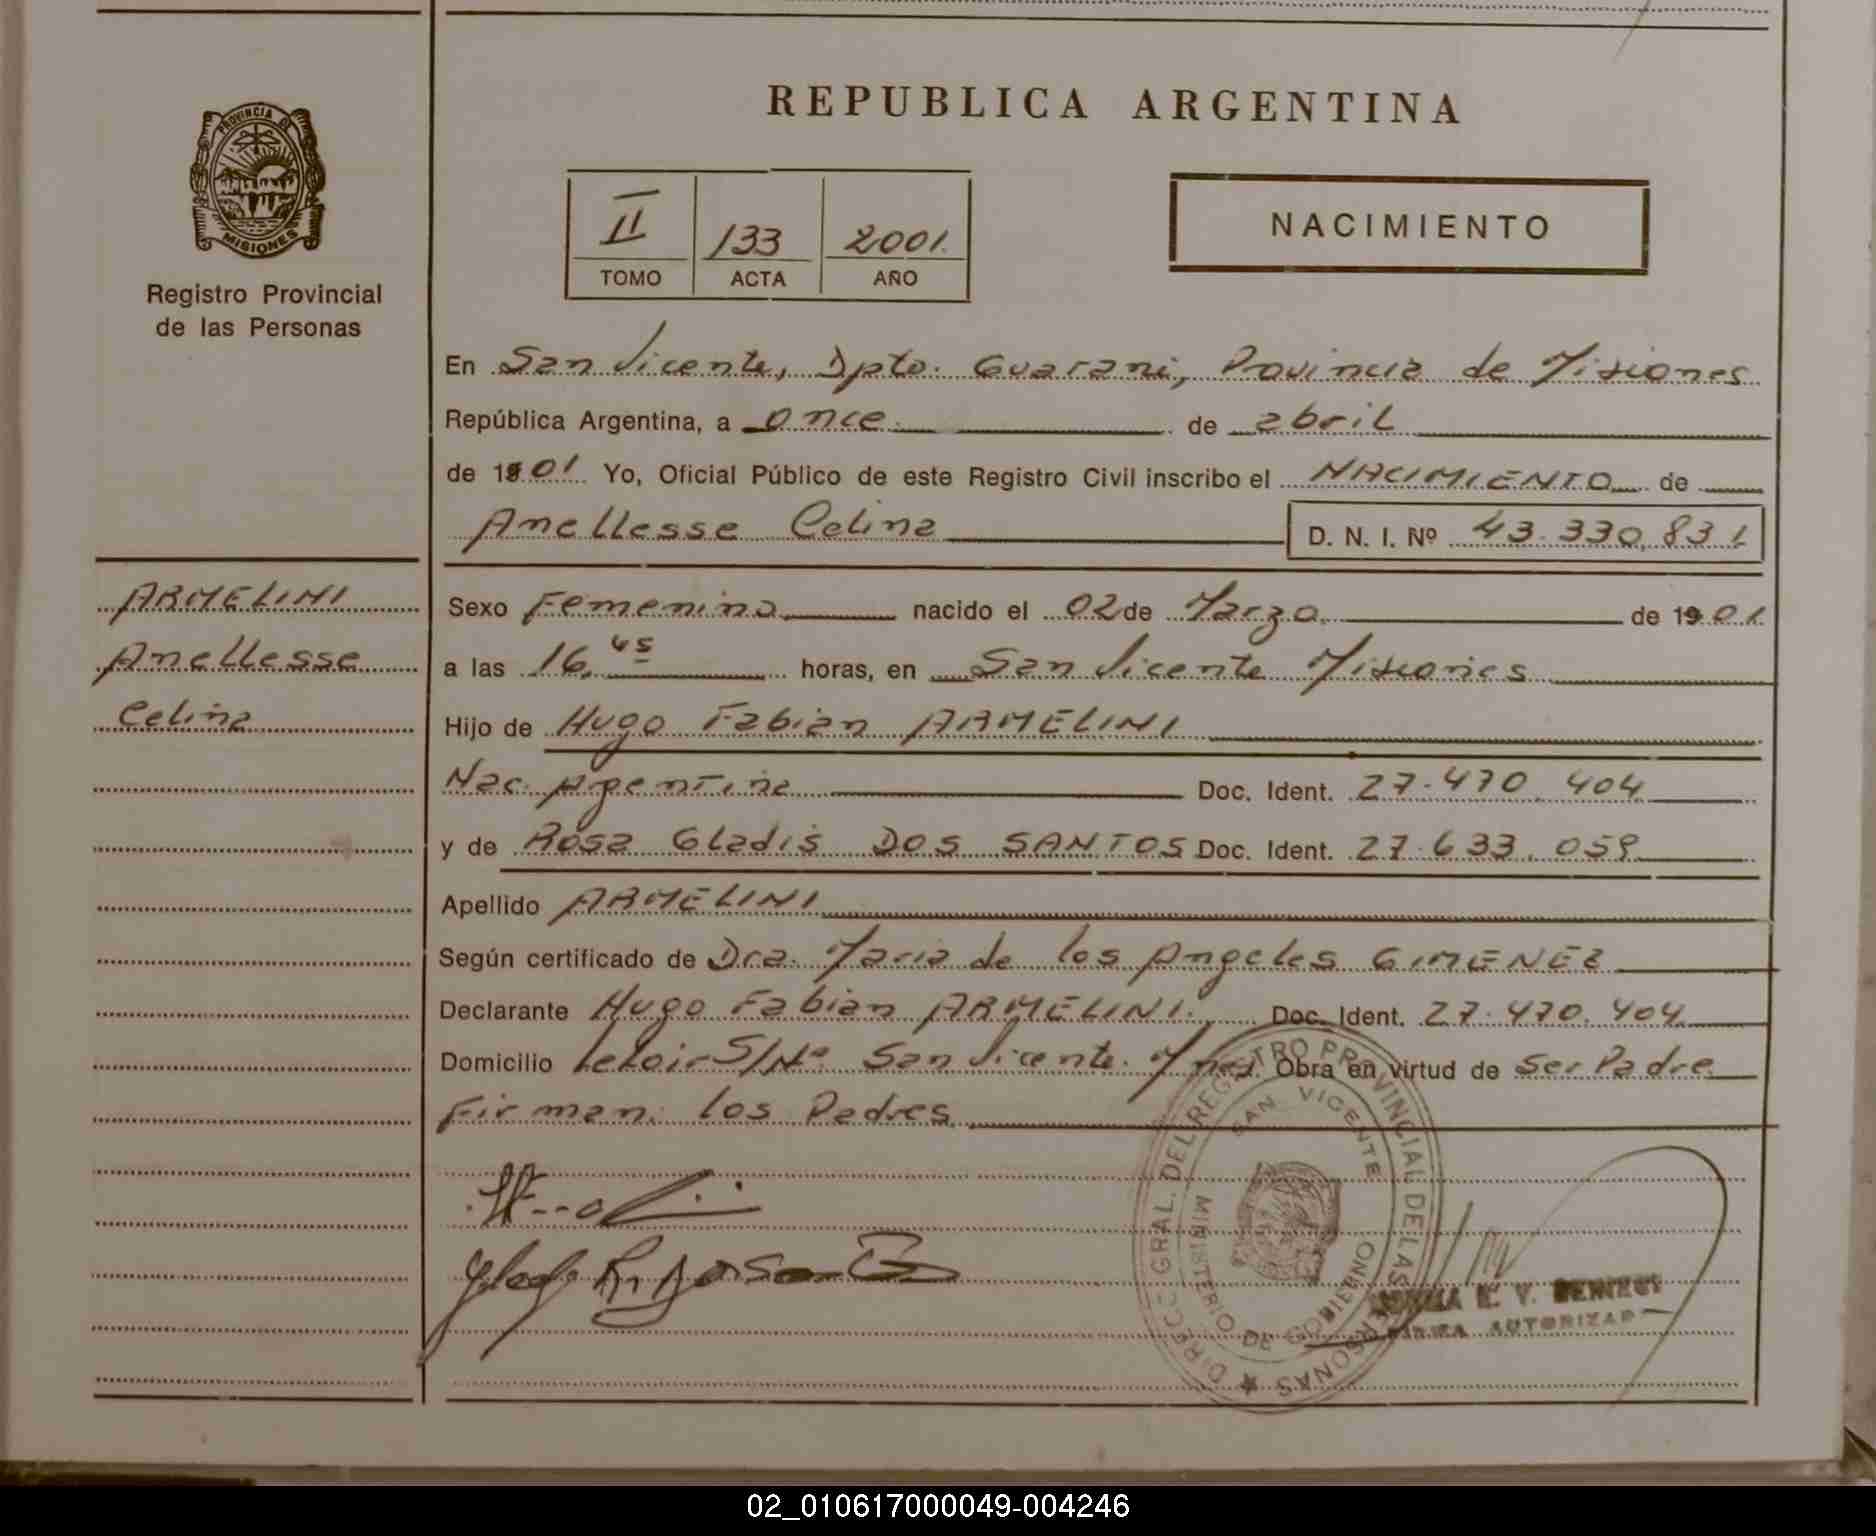 REPUBLICA ARGENTINA
PROVINCIA DE
MISIONES
Registro Provincial
de las Personas
II 133 2001.
TOMO ACTA AÑO
NACIMIENTO
En San Vicente, Dpto. Guarani, Provincia de Misiones
República Argentina, a once de abril
de 01 Yo, Oficial Público de este Registro Civil inscribo el NACIMIENTO de
Anellesse Celina D. N. I. Nº 43.330.831
ARMELINI
Anellesse
Celina
Sexo Femenino nacido el 02 de Marzo de 1901
a las 16,45 horas, en San Vicente Misiones
Hijo de Hugo Fabian ARMELINI
Nac. Argentina Doc. Ident. 27.470.404
y de Rosa Gladis DOS SANTOS Doc. Ident. 27.633.059
Apellido ARMELINI
Según certificado de Dra. Maria de los Angeles GIMENEZ
Declarante Hugo Fabian ARMELINI. Doc. Ident. 27.470.404
Domicilio Leloir S/Nº San Vicente. Mnes. Obra en virtud de ser Padre
Firman: los Padres
DIRECC. GRAL. DEL REGISTRO PROVINCIAL DE LAS PERSONAS
SAN VICENTE
MINISTERIO DE GOBIERNO
FIRMA AUTORIZAD
02_010617000049-004246